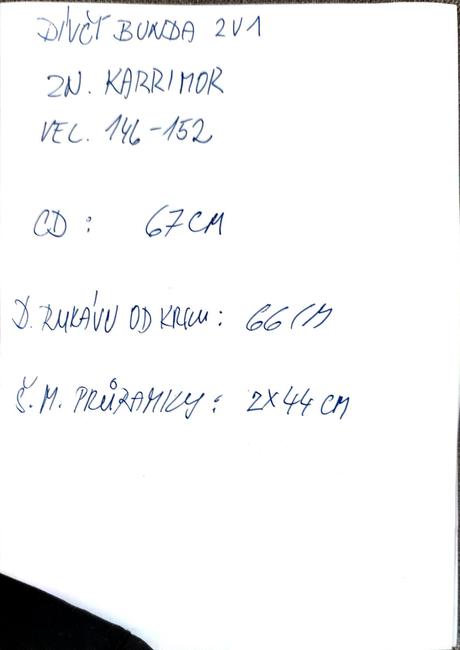 DÍVČÍ BUNDA 2V1
ZN. KARRIMOR
VEL. 146-152
CD: 67CM
D. RUKÁVU OD KRKU: 66CM
Š.M. PRŮRAMKY: 2X44CM